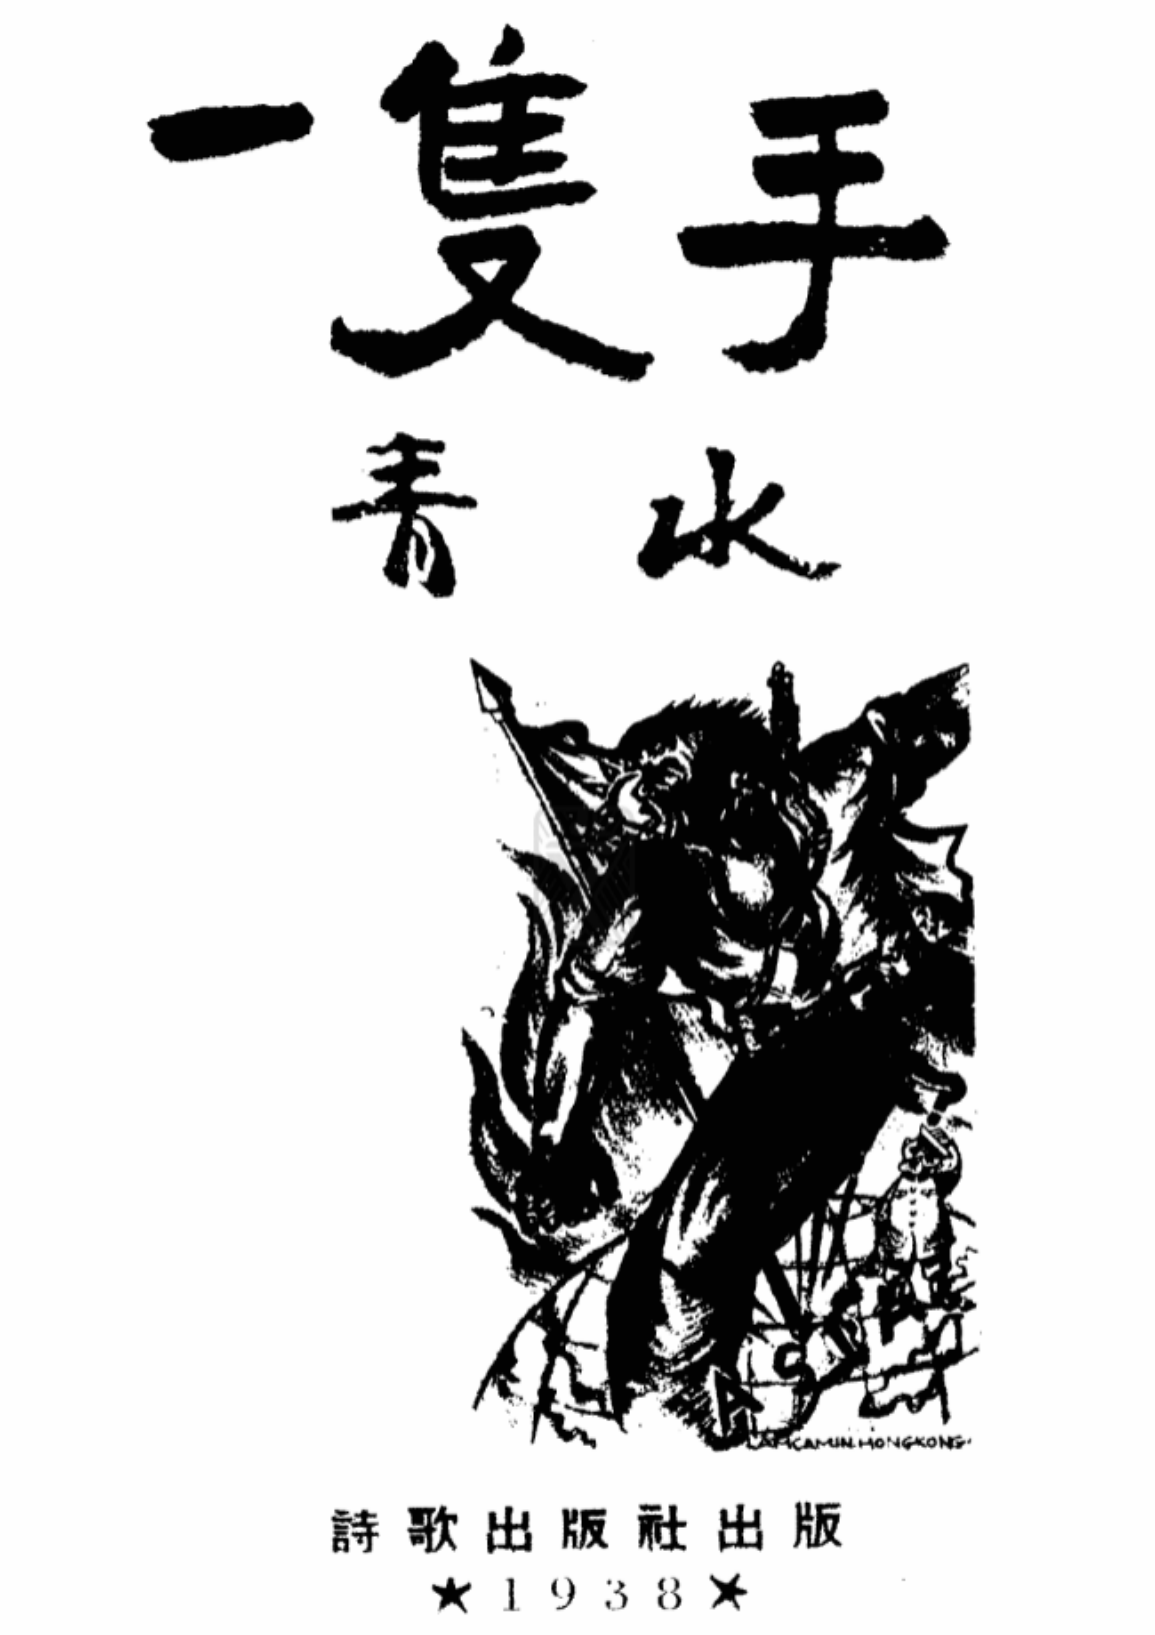 一隻手
青水
LAMCAMIN.HONGKONG.
詩歌出版社出版
★1938★